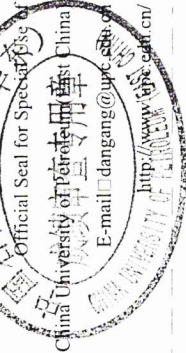 Official Seal for Special Use of
China University of Petroleum East China
E-mail□dangang@upc.edu.cn
http://www.upc.edu.cn/
CHINA UNIVERSITY OF PETROLEUM
专用章